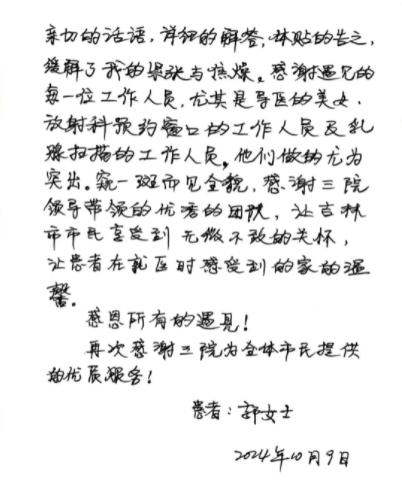 亲切的话语，详细的解答，体贴的告之，
缓解了我的紧张与焦燥。感谢遇见的
每一位工作人员，尤其是导医的美女、
放射科预约窗口的工作人员及乳
腺扫描的工作人员。他们做的尤为
突出。窥一斑而见全貌，感谢三院
领导带领的优秀的团队，让吉林
市市民享受到无微不致的关怀，
让患者在就医时感受到的家的温
馨。
感恩所有的遇见！
再次感谢三院为全体市民提供
的优质服务！
患者：郭女士
2024年10月9日